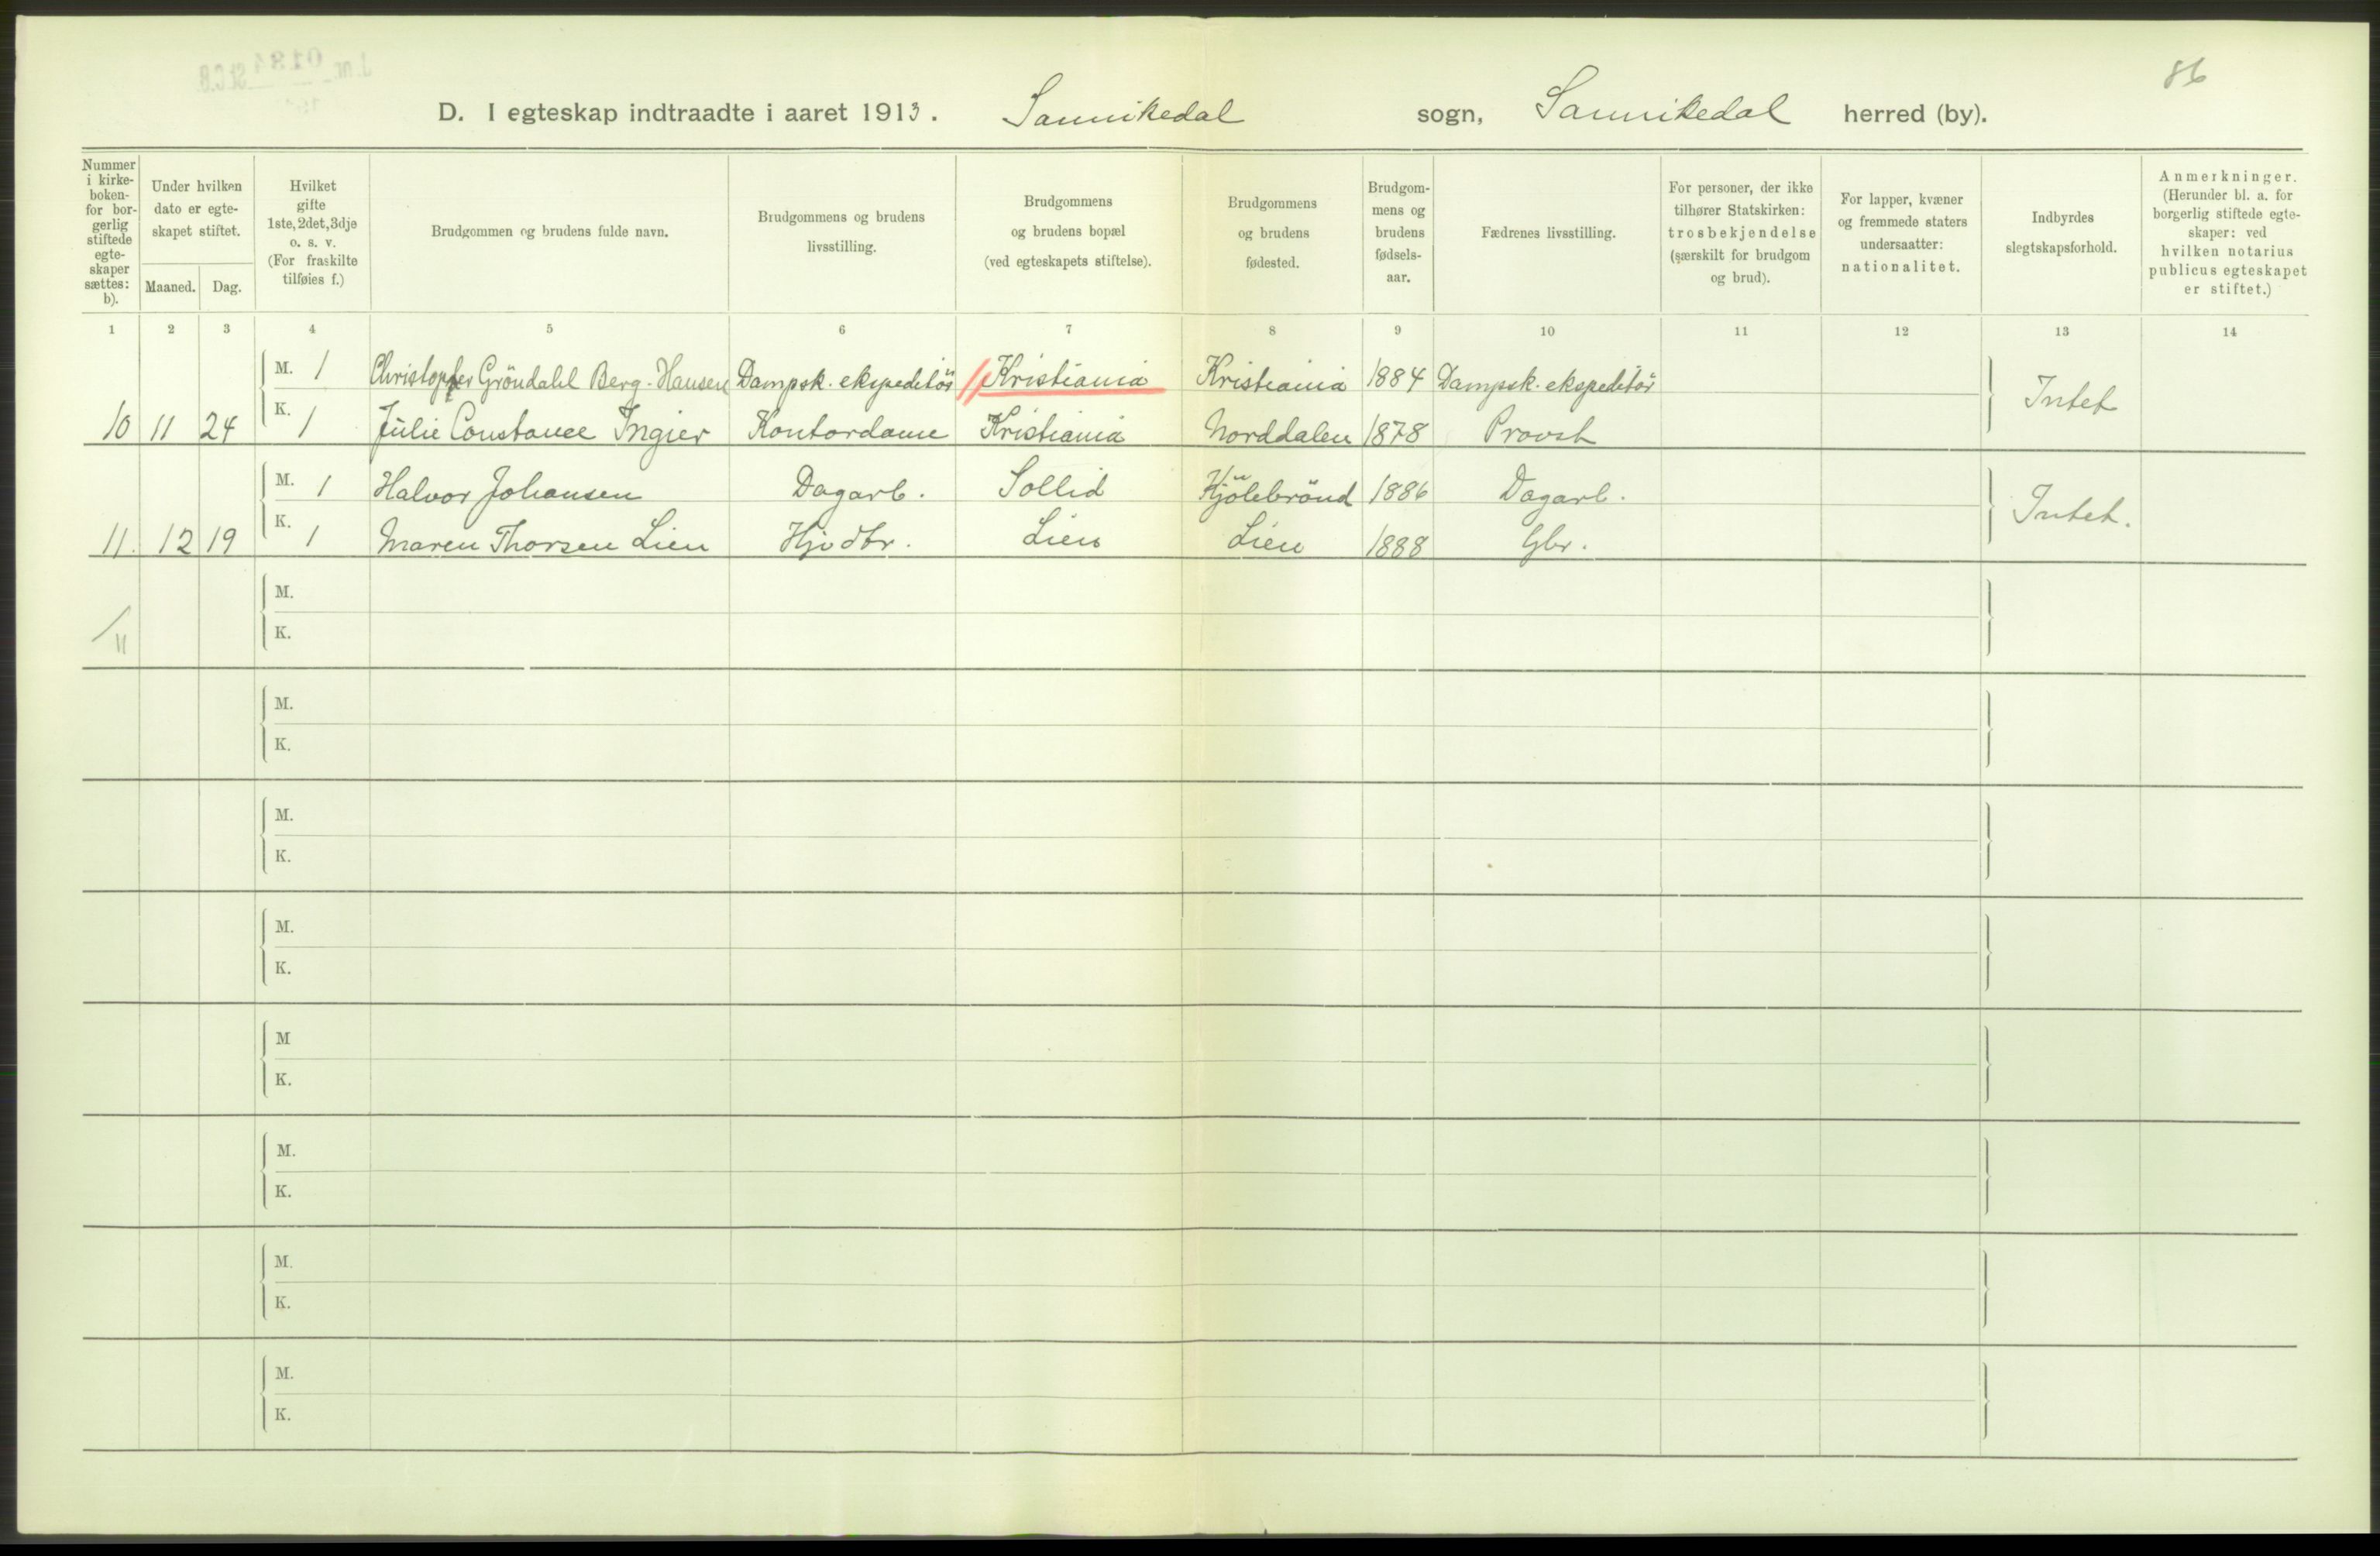 86
D. I egteskap indtraadte i aaret 1913. Sannikedal sogn, Sannikedal herred (by).
Nummer i kirke- boken- for bor- gerlig stiftede egte- skaper sættes: b).
Under hvilken dato er egte- skapet stiftet.
Maaned. Dag.
Hvilket gifte 1ste, 2det, 3dje o. s. v. (For fraskilte tilføies f.)
Brudgommen og brudens fulde navn.
Brudgommens og brudens livsstilling.
Brudgommens og brudens bopæl (ved egteskapets stiftelse).
Brudgommens og brudens fødested.
Brudgom- mens og brudens fødsels- aar.
Fædrenes livsstilling.
For personer, der ikke tilhører Statskirken: trosbekjendelse (særskilt for brudgom og brud).
For lapper, kvæner og fremmede staters undersaatter: nationalitet.
Indbyrdes slegtskapsforhold.
Anmerkninger. (Herunder bl. a. for borgerlig stiftede egte- skaper: ved hvilken notarius publicus egteskapet er stiftet.)
1 2 3 4 5 6 7 8 9 10 11 12 13 14
M. 1 Christopher Gröndahl Berg-Hansen Dampsk. ekspeditör Kristiania Kristiania 1884 Dampsk. ekspeditör Intet
10 11 24 K. 1 Julie Constance Ingier Kontordame Kristiania Norddalen 1878 Provst
M. 1 Halvor Johansen Dagarb. Sollid Kjölebrönd 1886 Dagarb. Intet.
11. 12 19 K. 1 Maren Thorsen Lien Hjv dtr. Lien Lien 1888 Gbr.
M.
11
K.
M.
K.
M.
K.
M.
K.
M
K.
M.
K.
M.
K.
M.
K.